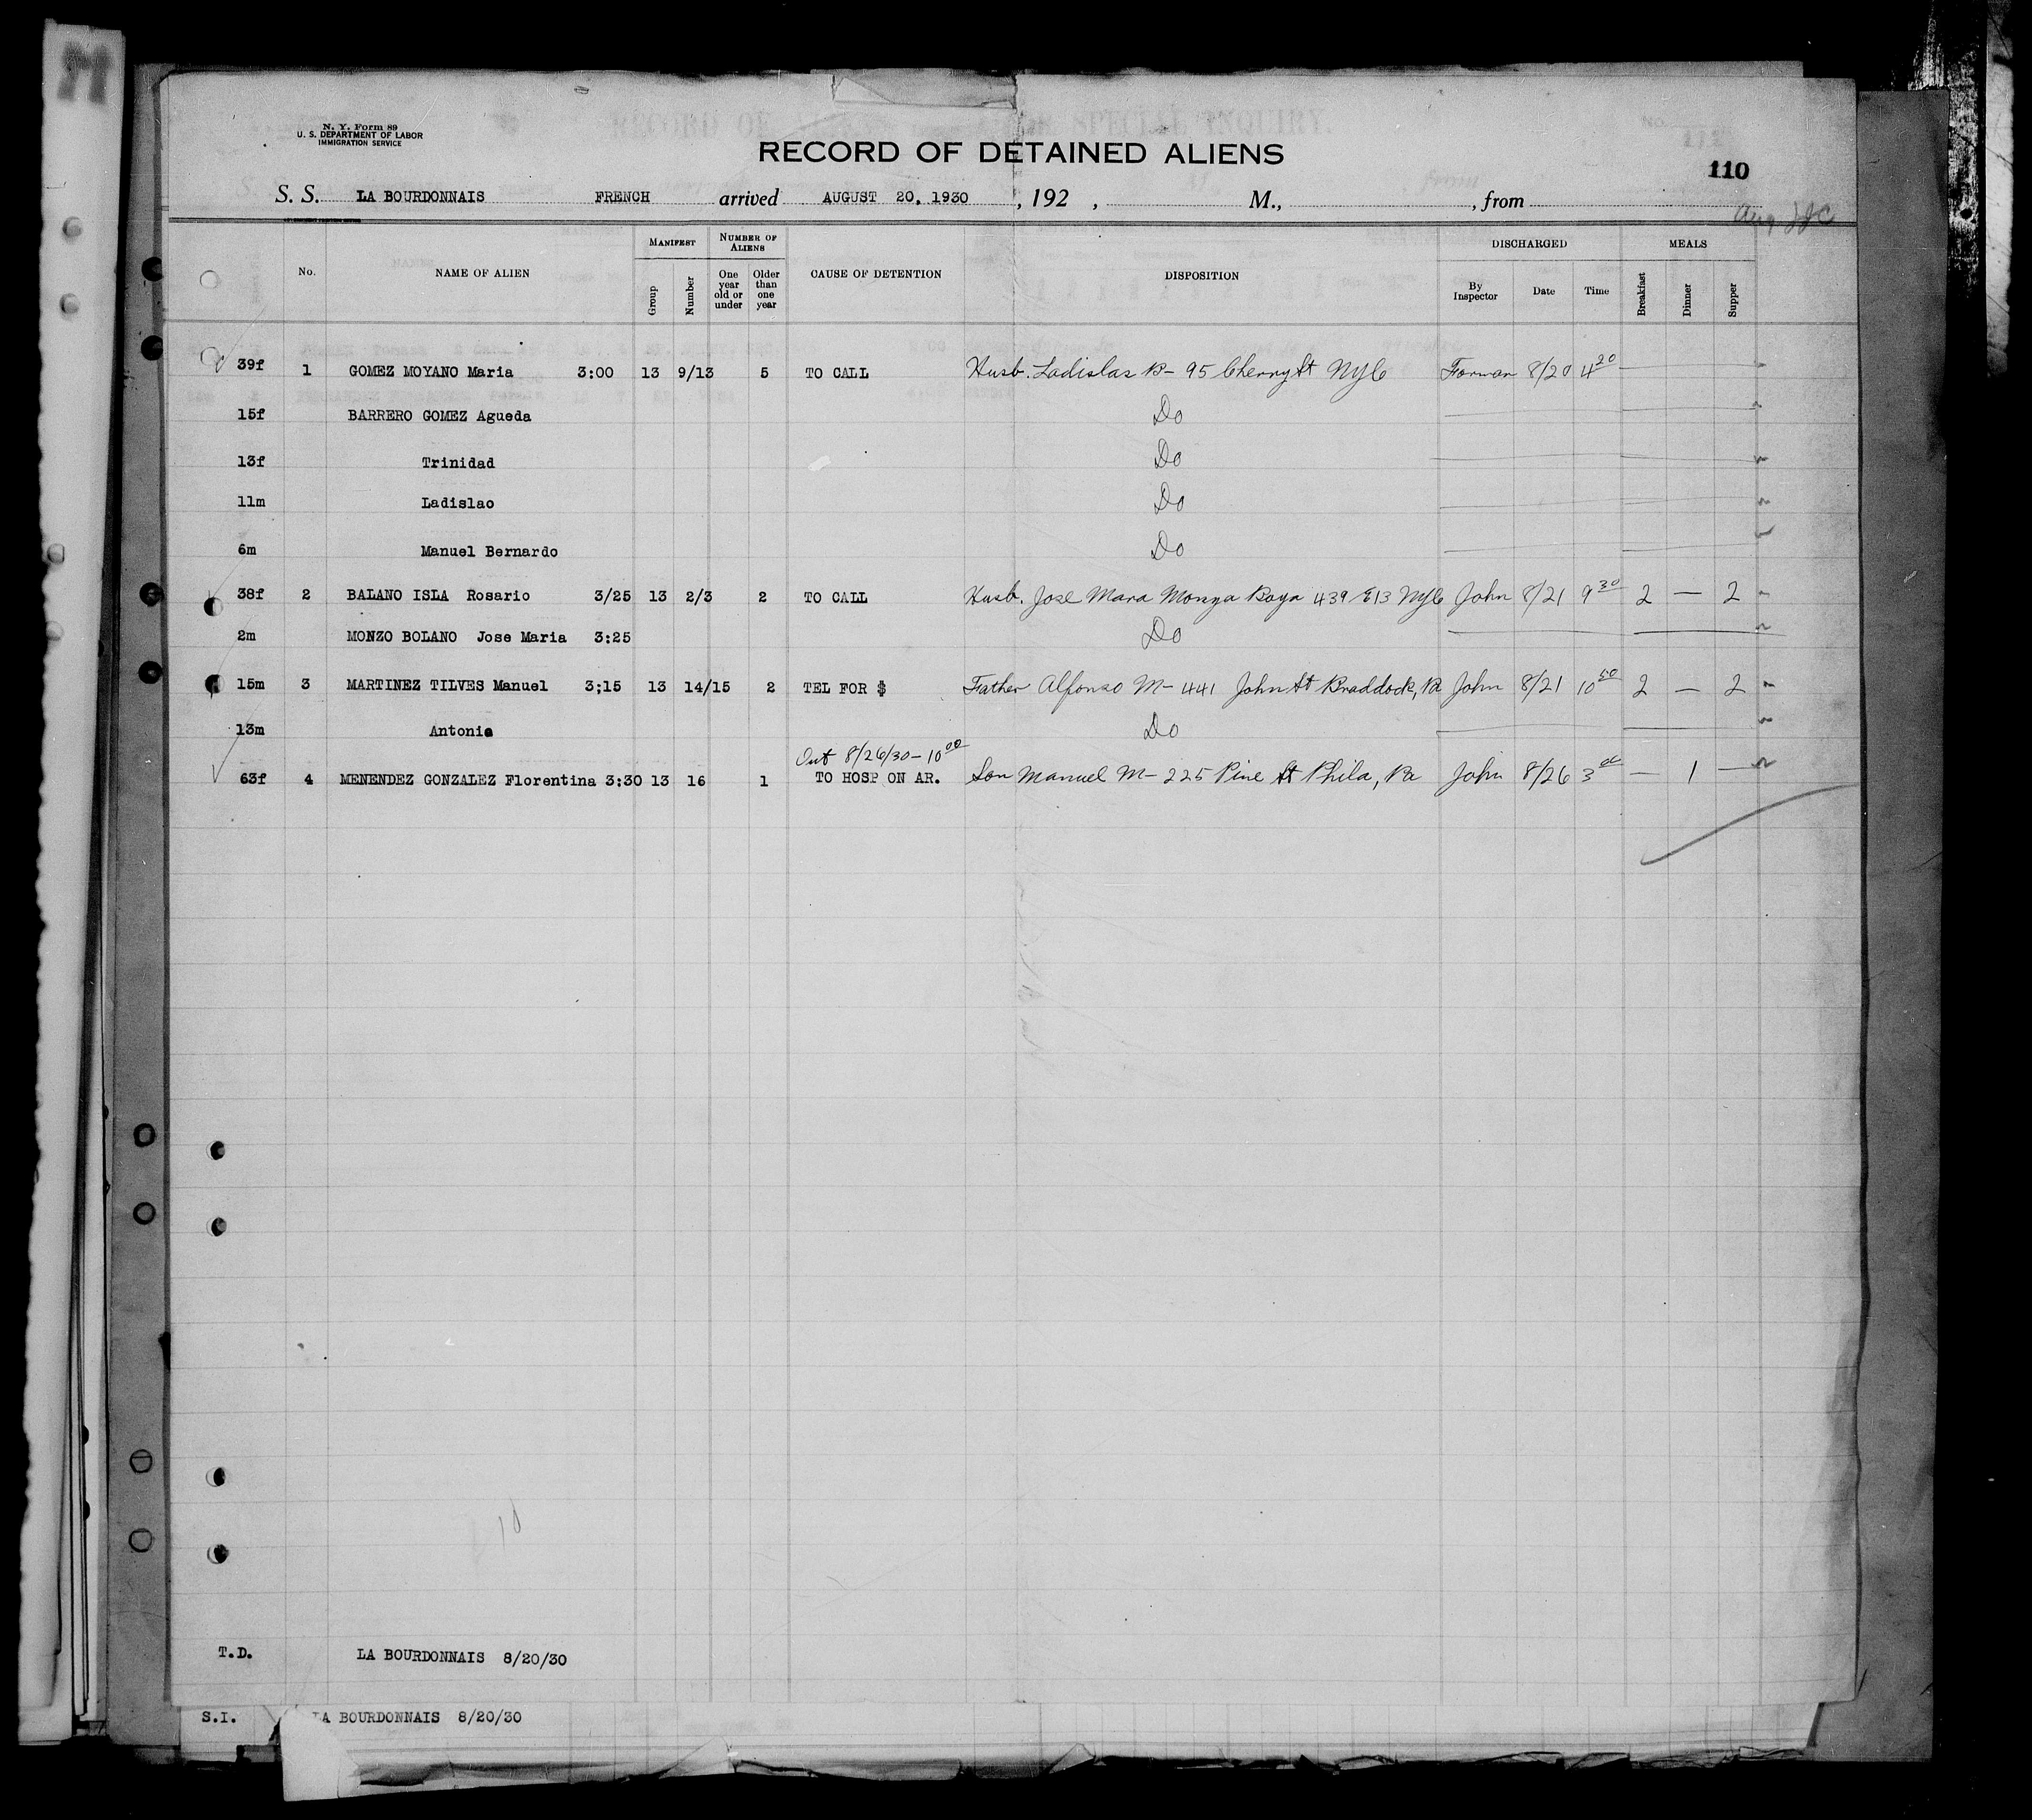 N. Y. Form 89
U. S. DEPARTMENT OF LABOR
IMMIGRATION SERVICE
RECORD OF DETAINED ALIENS
110
S. S. LA BOURDONNAIS FRENCH arrived AUGUST 20, 1930, 192 , M., , from
No. NAME OF ALIEN MANIFEST Group Number NUMBER OF ALIENS One year old or under Older than one year CAUSE OF DETENTION DISPOSITION DISCHARGED By Inspector Date Time MEALS Breakfast Dinner Supper
39f 1 GOMEZ MOYANO Maria 3:00 13 9/13 5 TO CALL Husb. Ladislas B- 95 Cherry St NYC Forman 8/20 4 20
15f BARRERO GOMEZ Agueda Do
13f Trinidad Do
11m Ladislao Do
6m Manuel Bernardo Do
38f 2 BALANO ISLA Rosario 3/25 13 2/3 2 TO CALL Husb. Jose Mara 439 E13 NYC John 8/21 9 30 2 — 2
2m MONZO BOLANO Jose Maria 3:25 Do
15m 3 MARTINEZ TILVES Manuel 3;15 13 14/15 2 TEL FOR $ Father Alfonso M- 441 John St Braddock, Pa John 8/21 10 50 2 — 2
13m Antonio Do
Out 8/26/30 - 10 00
63f 4 MENENDEZ GONZALEZ Florentina 3;30 13 16 1 TO HOSP ON AR. Son Manuel M- 225 Pine St Phila, Pa John 8/26 3 00 — 1 —
T.D. LA BOURDONNAIS 8/20/30
S.I. LA BOURDONNAIS 8/20/30